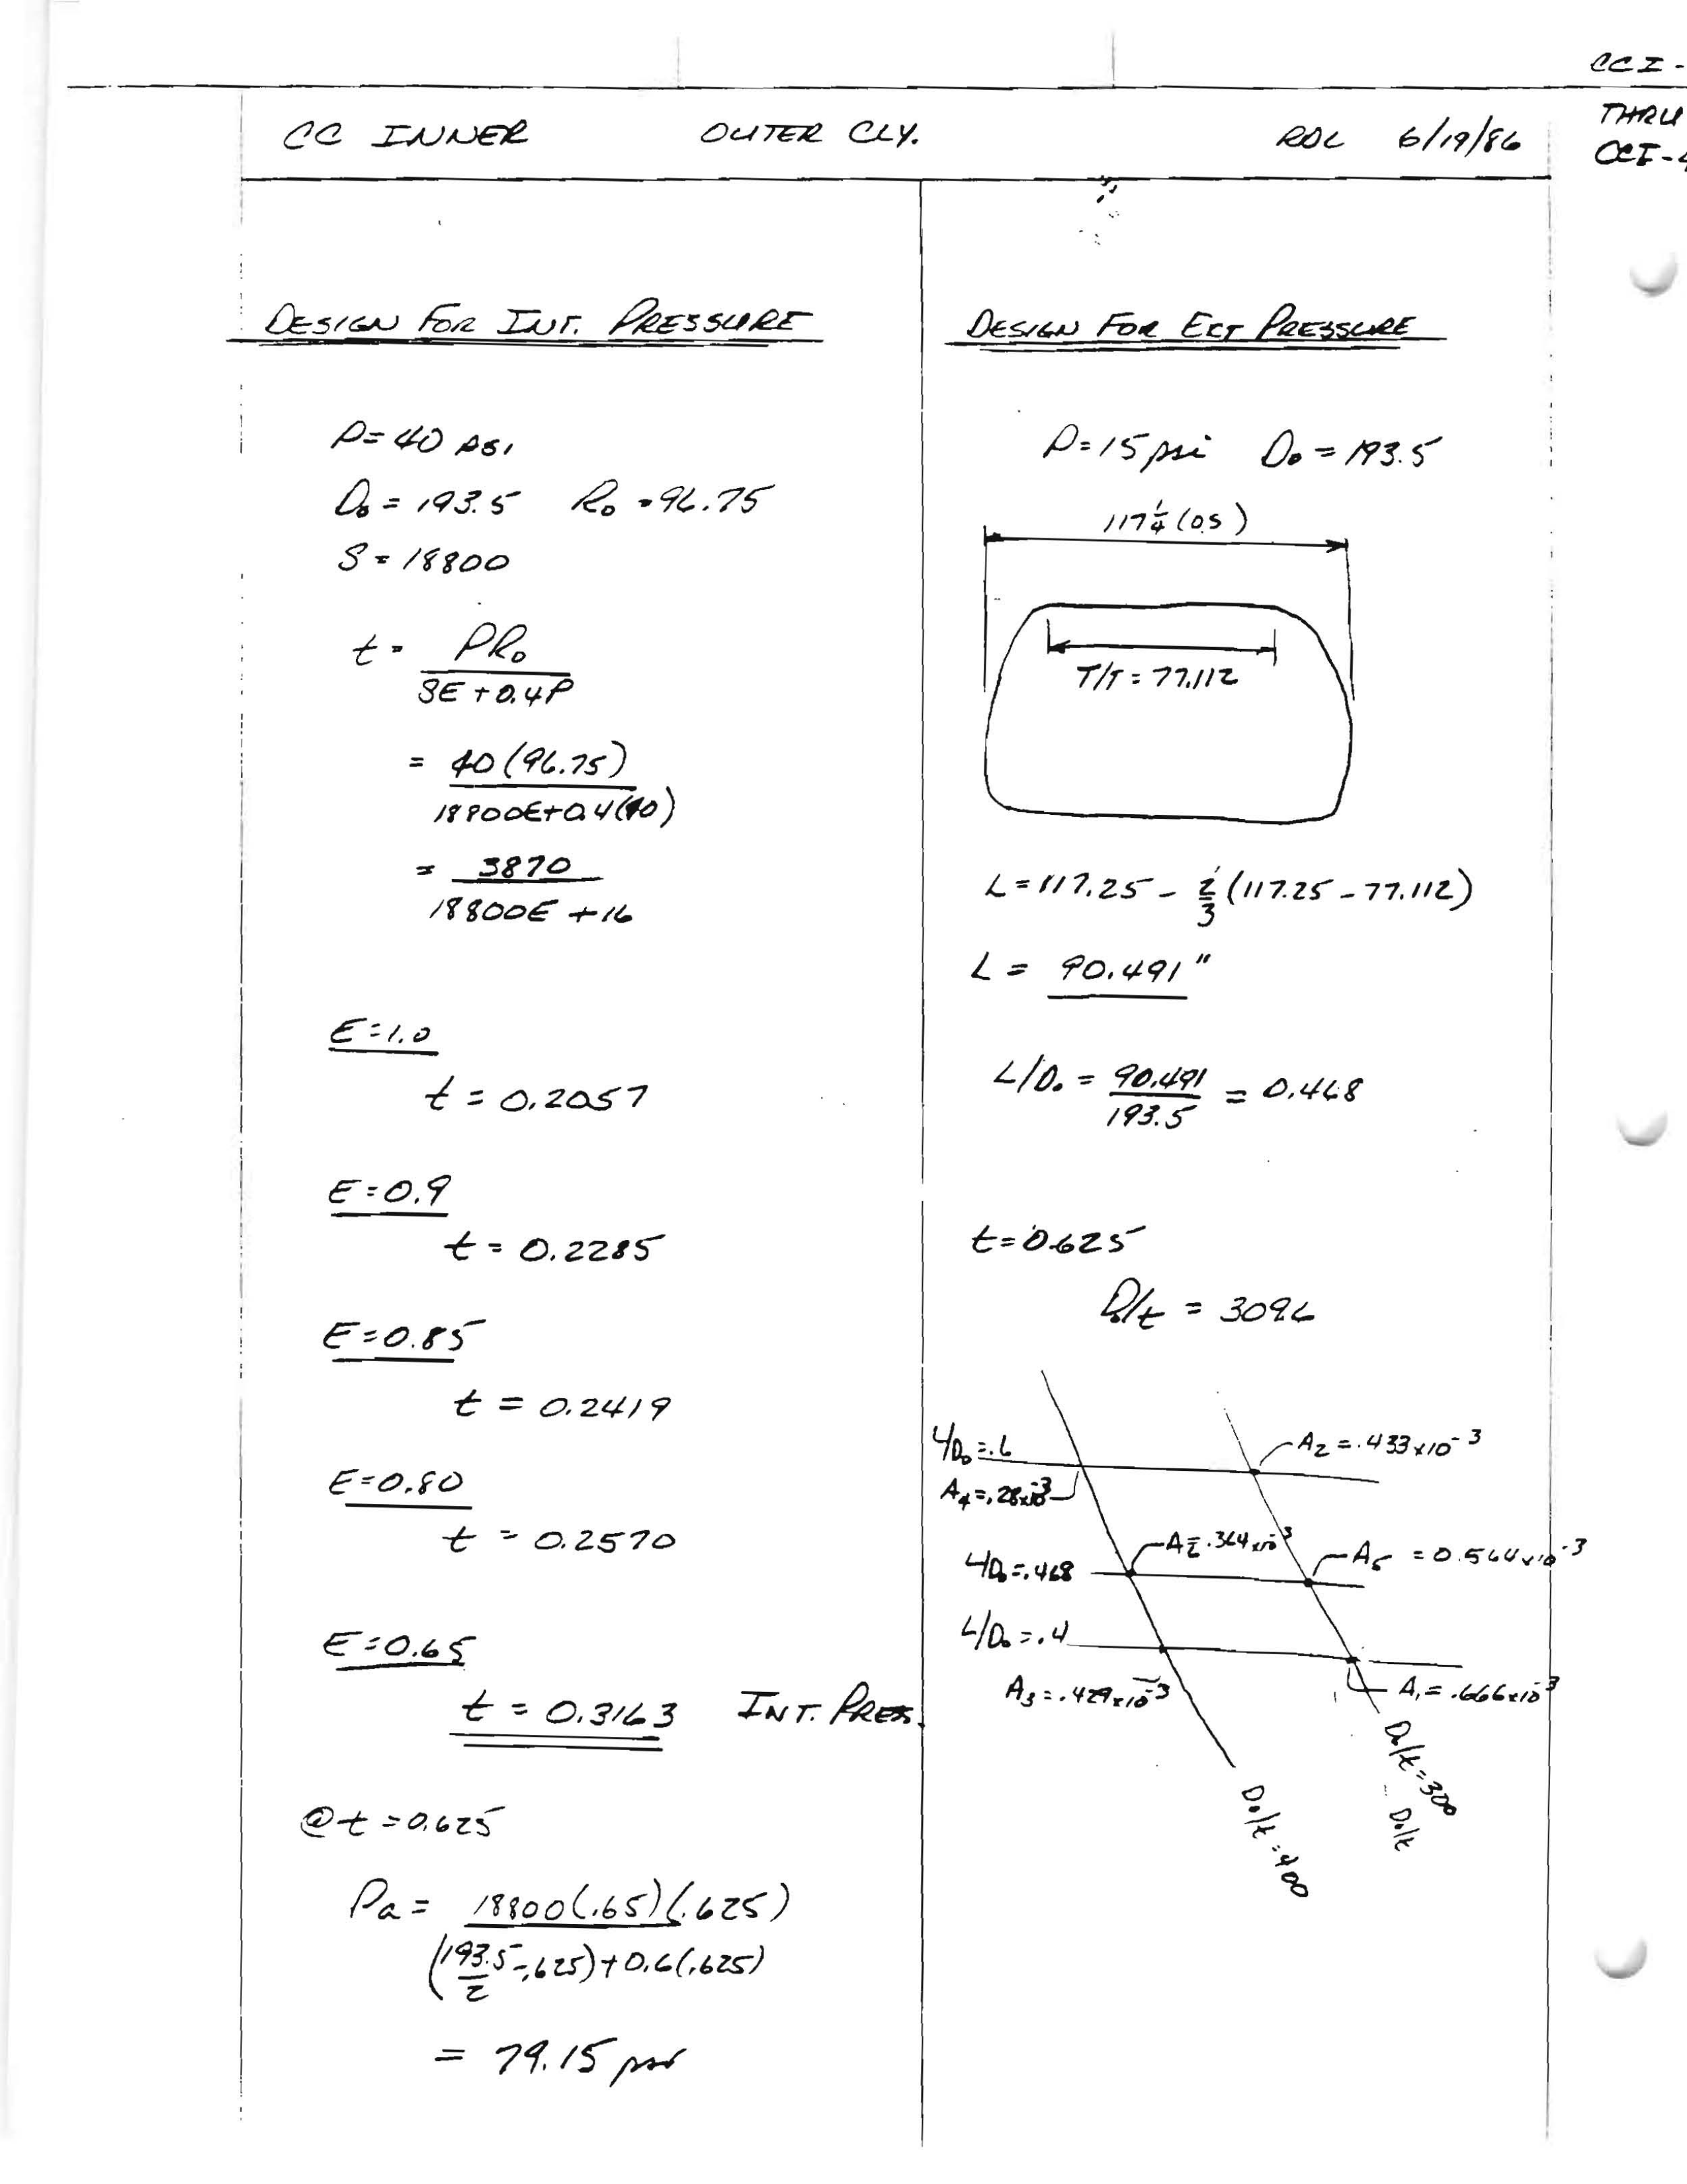 CCI -
THRU
CCI-4
CC INNER OUTER CLY. RDL 6/19/86
DESIGN FOR INT. PRESSURE
P=40 psi
D₀ = 193.5 R₀ = 96.75
S = 18800
t = PR₀ / SE + 0.4P
= 40(96.75) / 18800E+0.4(40)
= 3870 / 18800E +16
E=1.0
t = 0.2057
E=0.9
t = 0.2285
E=0.85
t = 0.2419
E=0.80
t = 0.2570
E=0.65
t = 0.3163 INT. PRES.
@ t = 0.625
Pa = 18800(.65)(.625) / (193.5/2 -.625)+0.6(.625)
= 79.15 psi
DESIGN FOR EXT PRESSURE
P=15 psi D₀ = 193.5
117 1/4 (OS)
T/T = 77.112
L = 117.25 - 2/3 (117.25 - 77.112)
L = 90.491"
L/D₀ = 90.491 / 193.5 = 0.468
t=0.625
D₀/t = 309.6
L/D₀ = .6
A₂ = .433x10⁻³
A₄ = .28x10⁻³
L/D₀ = .468
A₆ = .364x10⁻³
A₅ = 0.564x10⁻³
L/D₀ = .4
A₃ = .429x10⁻³
A₁ = .666x10⁻³
D₀/t = 300
D₀/t = 400
D₀/t